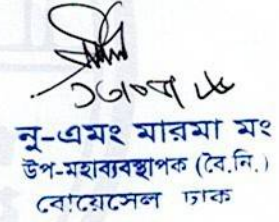 নু-এমং মারমা মং
উপ-মহাব্যবস্থাপক (বৈ.নি.)
বোয়েসেল ঢাক